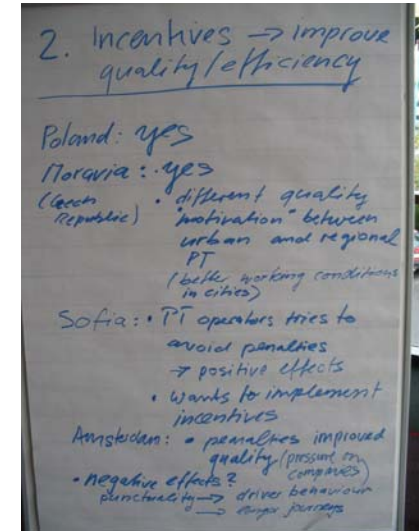 2. Incentives → improve
quality/efficiency
Poland: yes
Moravia: yes
(Czech • different quality
Republic) "motivation" between
urban and regional
PT
(better working conditions
in cities)
Sofia: • PT operators tries to
avoid penalties
→ positive effects
• wants to implement
incentives
Amsterdam: • penalties improved
quality (pressure on
companies)
• negative effects?
punctuality → driver behaviour
→ journeys